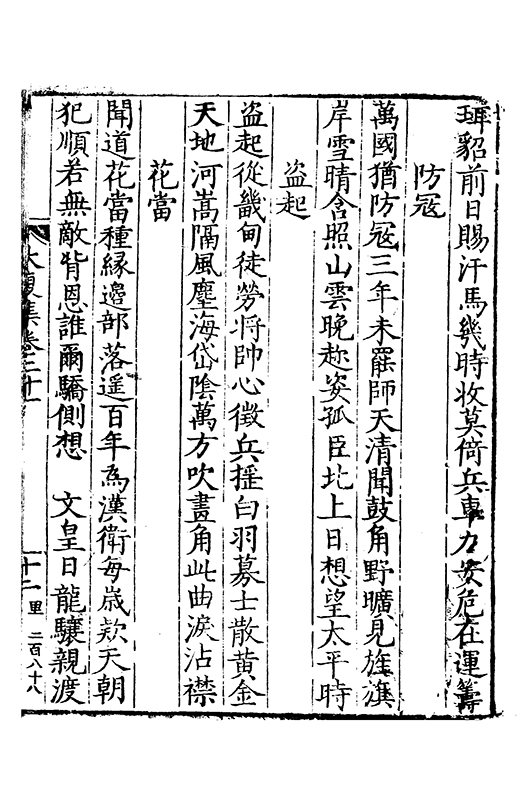 珥貂前日賜汗馬幾時收莫倚兵車力安危在運籌
防冦
萬國猶防冦三年未罷師天清聞鼓角野曠見旌旗
岸雪晴含照山雲晚趂姿孤臣北上日想望太平時
盗起
盗起從畿甸徒勞将帥心徵兵揺白羽募士散黃金
天地河嵩隔風塵海岱陰萬方吹畫角此曲淚沾襟
花當
聞道花當種縁邉部落遥百年爲漢衛每歲欵天朝
犯順若無敵背恩誰爾驕側想 文皇日龍驤親渡
大復集卷二十一
十二 里 二百八十八